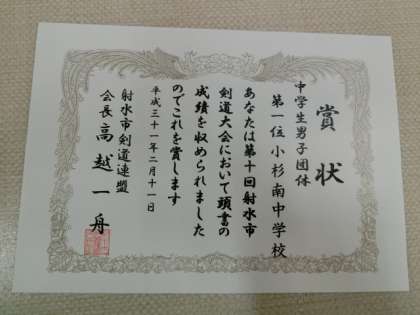 賞状
中学生男子団体
第一位 小杉南中学校
あなたは第十回射水市
剣道大会において頭書の
成績を収められました
のでこれを賞します
平成三十一年二月十一日
射水市剣道連盟
会長 高越一舟